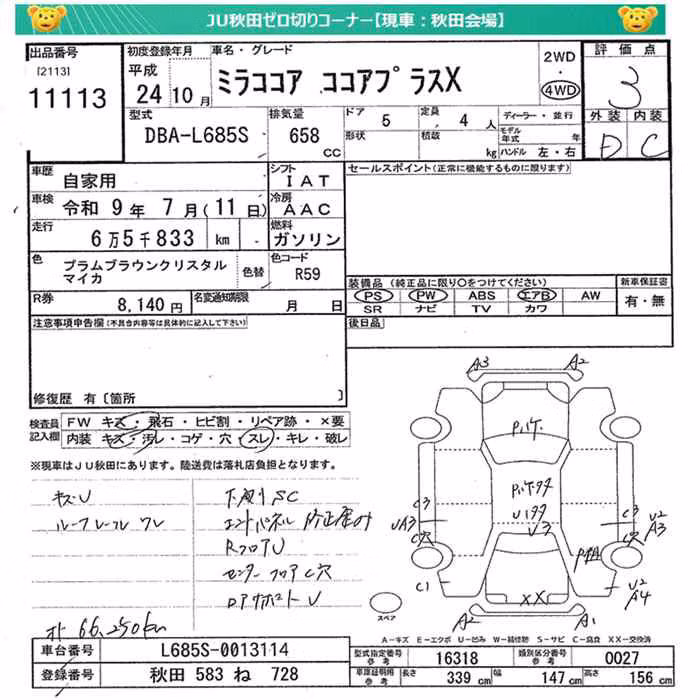 JU秋田ゼロ切りコーナー【現車：秋田会場】
出品番号
[2113]
11113
初度登録年月
平成
24年10月
車名・グレード
ミラココア ココアプラスX
2WD
・
4WD
評価点
3
外装 内装
D C
型式
DBA-L685S
排気量
658
CC
ドア
5
定員
4人
形状
積載
kg
ディーラー・並行
モデル年式 年
ハンドル 左・右
車歴
自家用
シフト
IAT
車検
令和 9年 7月(11日)
冷房
AAC
走行
6万5千833 km
燃料
ガソリン
色
プラムブラウンクリスタル
マイカ
色替
色コード
R59
R券
8,140円
名変通知期限
月 日
セールスポイント(正常に機能するものに限ります)
装備品(純正品に限り○をつけてください)
PS PW ABS エアB AW
SR ナビ TV カワ
新車保証書
有・無
後日品
注意事項申告欄(不具合内容等は具体的に記入して下さい)
修復歴 有〔箇所 〕
検査員
記入欄
FW キズ・飛石・ヒビ割・リペア跡・×要
内装 キズ・汚レ・コゲ・穴・スレ・キレ・破レ
※現車はJU秋田にあります。陸送費は落札店負担となります。
キズU
ルーフレール ワレ
下廻りSC
エンドパネル 修正歪み
RフロアU
センターフロアC穴
ロアサポートU
オト 66,250km
A3 A2
Pハゲ
Pハゲタ
Uイタタ
U3
C3
UA3
C穴
C1
C3
U2
A3
C穴
U2
A4
XX
A2 A1
スペア
A－キズ E－エクボ U－凹み W－補修跡 S－サビ C－腐食 XX－交換済
車台番号
L685S-0013114
登録番号
秋田 583 ね 728
型式指定番号
参考
16318
類別区分番号
参考
0027
車庫証明用
参考
長さ
339 cm
幅
147 cm
高さ
156 cm